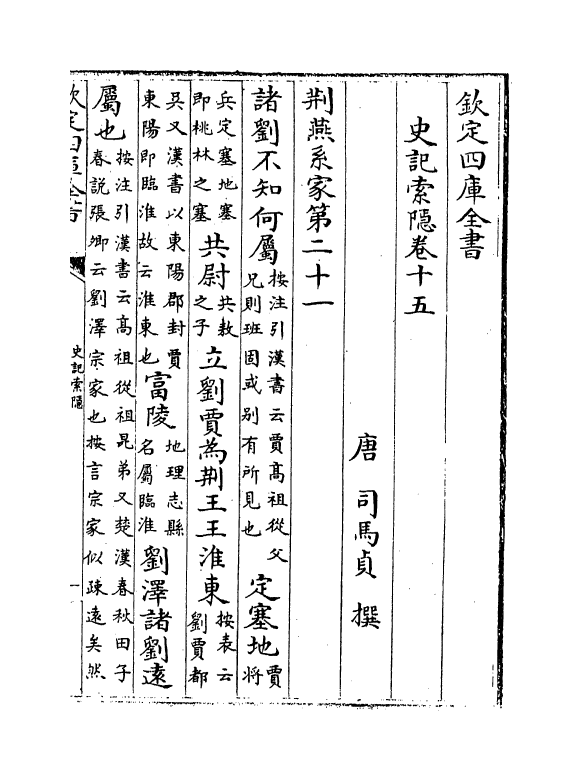 欽定四庫全書
史記索隱卷十五
唐 司馬貞 撰
荆燕系家第二十一
諸劉不知何屬按注引漢書云賈高祖從父兄則班固或别有所見也定塞地賈將
兵定塞地塞即桃林之塞共尉共敖之子立劉賈為荆王王淮東按表云劉賈都
吳又漢書以東陽郡封賈東陽即臨淮故云淮東也富陵地理志縣名屬臨淮劉澤諸劉遠
屬也按注引漢書云高祖從祖昆弟又楚漢春秋田子春說張卿云劉澤宗家也按言宗家似疎遠矣然
欽定四庫全書
史記索隱
一